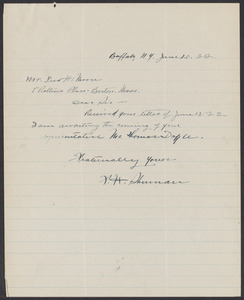 Buffalo N.Y. June 20. 22
Mr. Fred H. Moore
1 Rollins Place. Boston. Mass.
Dear Sir —
Received your letter of June 13. 22
I am awaiting the coming of your
representative Mr Thomas Doyle.
Fraternally yours